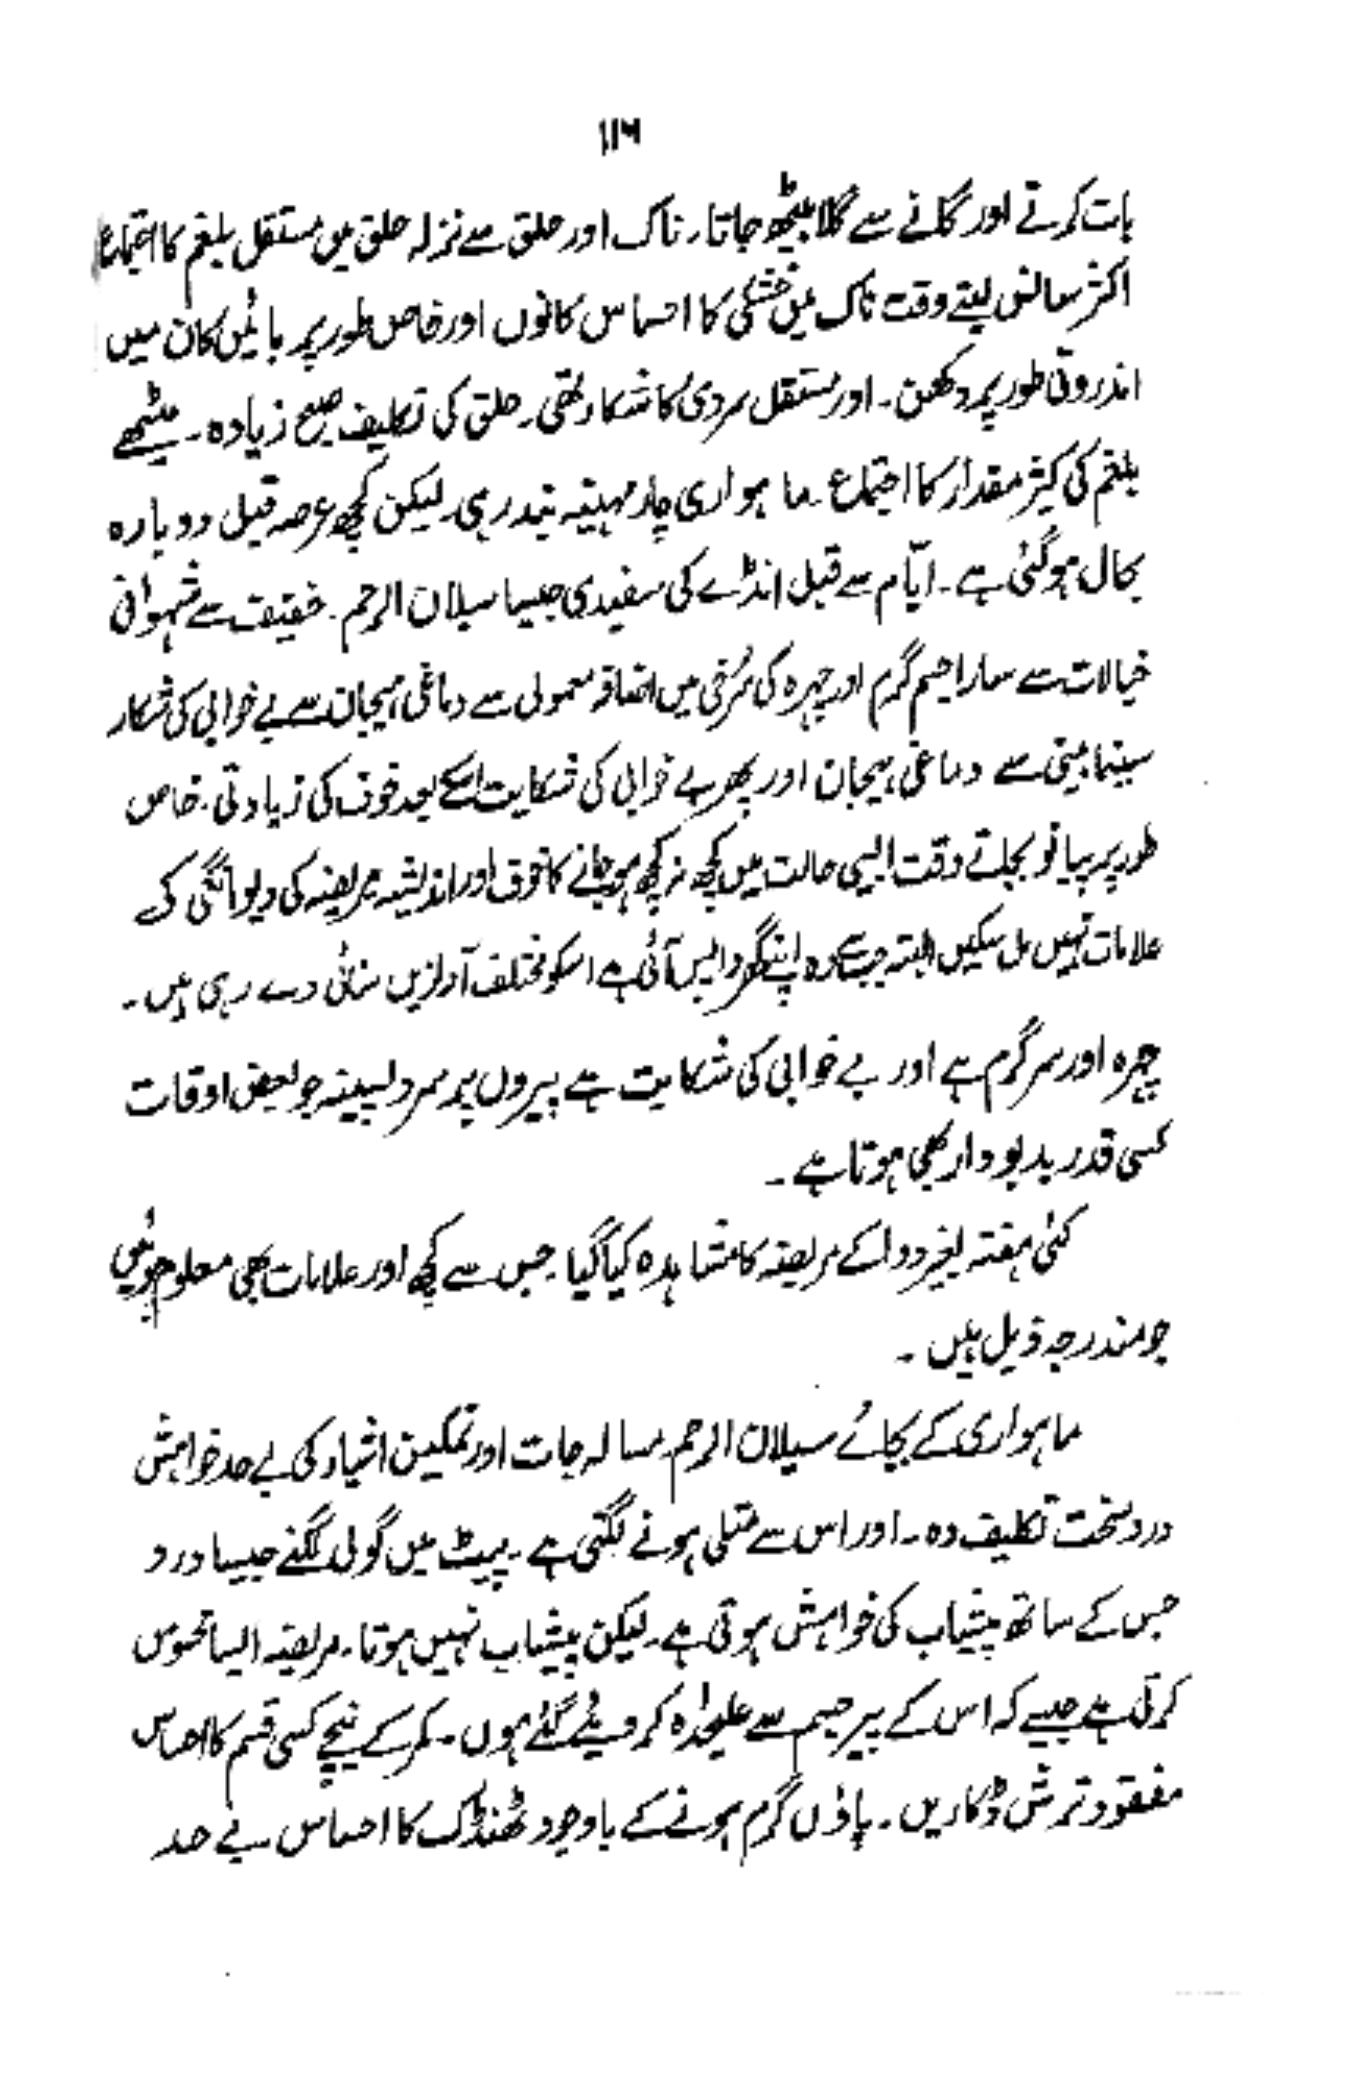 ۱۱۶
بات کرتے اور گانے سے گلا بیٹھ جاتا۔ ناک اور حلق سے نزلہ حلق میں مستقل بلغم کا اجتماع
اکثر سانس لیتے وقت ناک میں خشکی کا احساس کانوں اور خاص طور پر بائیں کان میں
اندرونی طور پر دکھن۔ اور مستقل سردی کا شکار تھی۔ حلق کی تکلیف صبح زیادہ۔ میٹھے
بلغم کی کثیر مقدار کا اجتماع۔ ماہواری چار مہینہ بند رہی۔ لیکن کچھ عرصہ قبل دوبارہ
بحال ہوگئی ہے۔ ایّام سے قبل انڈے کی سفیدی جیسا سیلان الرحم۔ خفیف سے شہوانی
خیالات سے سارا جسم گرم اور چہرہ کی سُرخی میں اضافہ معمولی سے دماغی ہیجان سے بے خوابی کی شکار
سینما بینی سے دماغی ہیجان اور پھر بے خوابی کی شکایت اسکے بعد خوف کی زیادتی۔ خاص
طور پر پیانو بجاتے وقت ایسی حالت میں کچھ نہ کچھ ہوجانے کا خوف اور اندیشہ مریضہ کی دیوانگی کے
علامات نہیں مل سکیں البتہ جب سے وہ اپنے گھر واپس آئی ہے اسکو مختلف آوازیں سنائی دے رہی ہیں۔
چہرہ اور سر گرم ہے اور بے خوابی کی شکایت ہے پیروں پر سرد پسینہ جو بعض اوقات
کسی قدر بدبودار بھی ہوتا ہے۔
کئی ہفتہ بغیر دوا کے مریضہ کا مشاہدہ کیا گیا جس سے کچھ اور علامات بھی معلوم ہوئیں
جو مندرجہ ذیل ہیں۔
ماہواری کے بجائے سیلان الرحم۔ مسالہ جات اور نمکین اشیاء کی بے حد خواہش
درد سخت تکلیف دہ۔ اور اس سے متلی ہونے لگتی ہے۔ پیٹ میں گولی لگنے جیسا درد
جس کے ساتھ پیشاب کی خواہش ہوتی ہے۔ لیکن پیشاب نہیں ہوتا۔ مریضہ ایسا محسوس
کرتی ہے جیسے کہ اس کے پیر جسم سے علیحدہ کر دیئے گئے ہوں۔ کمر کے نیچے کسی قسم کا احساس
مفقود ترش ڈکاریں۔ پاؤں گرم ہونے کے باوجود ٹھنڈک کا احساس بے حد